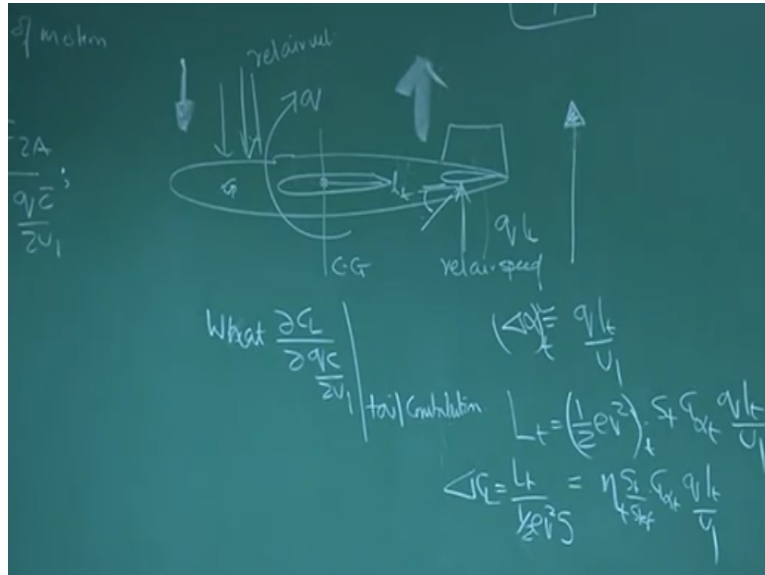 of motion
rel air vel
q
2A
q c̄ ;
2U₁
l_t
q l_t
C.G
rel air speed
What ∂C_L / ∂ qc/2U₁ | tail Contribution
(Δα)_t = q l_t / U₁
L_t = (1/2 ρV²)_t . S_t C_Lα_t q l_t / U₁
ΔC_L = L_t / ½ρV²S = η_t S_t/S_ref . C_Lα_t q l_t / U₁